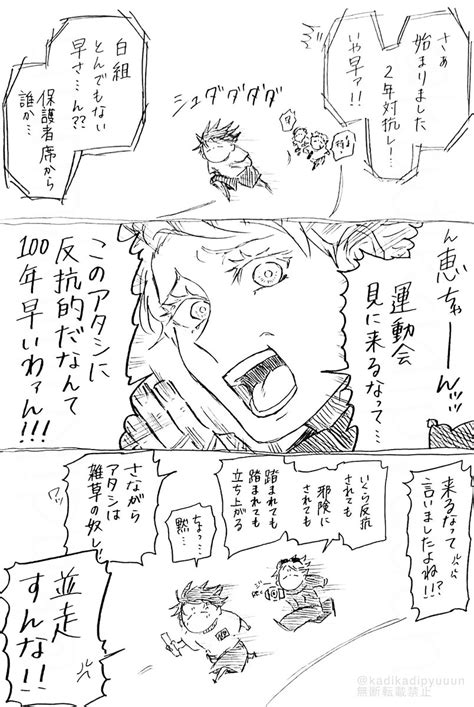 さぁ
始まりました
2年対抗レ…
いや早ァ!!
シュダダダダ
白組
とんでもない
早さ…ん??
保護者席から
誰か…
ん恵ちゃーんッッ
運動会
見に来るなって…
このアタシに
反抗的だなんて
100年早いわァん!!!
来るなって
言いましたよね!!?
いくら反抗
されても
邪険に
されても
踏まれても
踏まれても
立ち上がる
ちょっ…
黙…
さながら
アタシは
雑草の奴レ!
ワッ
並走
すんな!!
@kadikadipyuuun
無断転載禁止